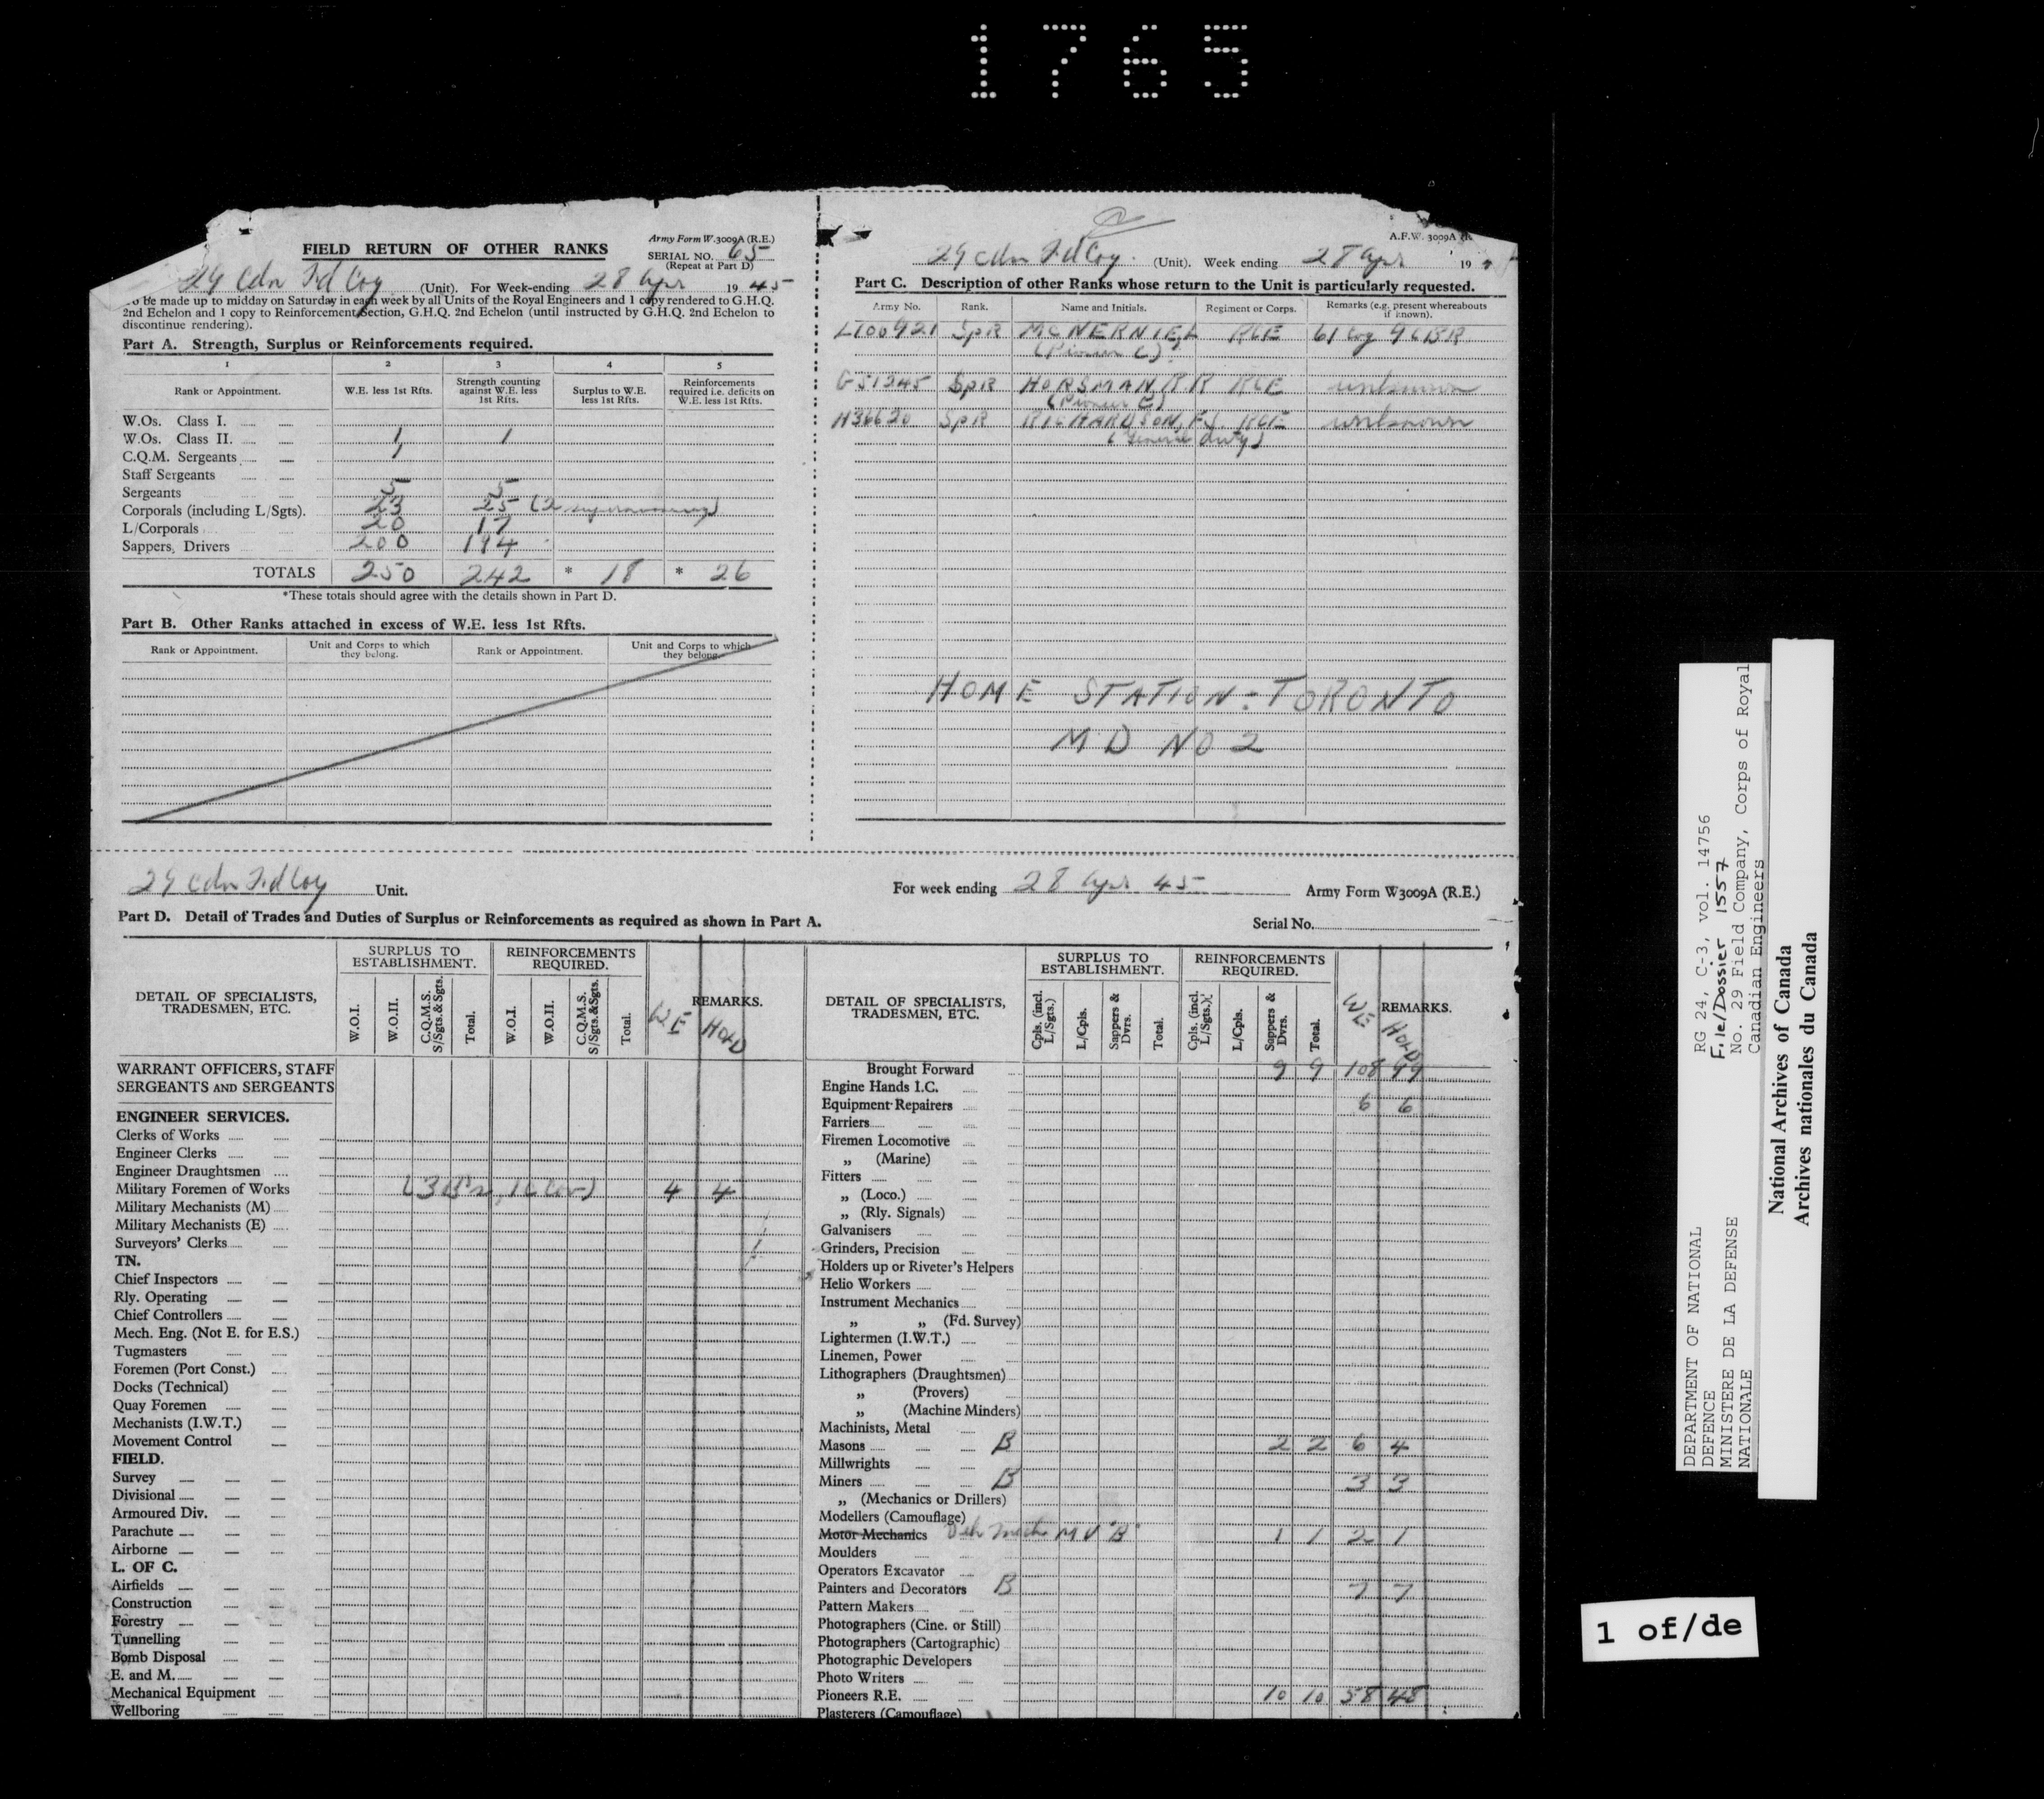 1765
Army Form W.3009A (R.E.)
FIELD RETURN OF OTHER RANKS
SERIAL NO. 65
(Repeat at Part D)
29 Cdn Fd Coy (Unit). For Week-ending 28 Apr 1945
To be made up to midday on Saturday in each week by all Units of the Royal Engineers and 1 copy rendered to G.H.Q.
2nd Echelon and 1 copy to Reinforcement Section, G.H.Q. 2nd Echelon (until instructed by G.H.Q. 2nd Echelon to
discontinue rendering).
Part A. Strength, Surplus or Reinforcements required.
1 2 3 4 5
Rank or Appointment. W.E. less 1st Rfts. Strength counting against W.E. less 1st Rfts. Surplus to W.E. less 1st Rfts. Reinforcements required i.e. deficits on W.E. less 1st Rfts.
W.Os. Class I.
W.Os. Class II. 1 1
C.Q.M. Sergeants 1
Staff Sergeants
Sergeants 5 5
Corporals (including L/Sgts). 23 25 (2
L/Corporals 20 17
Sappers, Drivers 200 194
TOTALS 250 242 * 18 * 26
*These totals should agree with the details shown in Part D.
Part B. Other Ranks attached in excess of W.E. less 1st Rfts.
Rank or Appointment. Unit and Corps to which they belong. Rank or Appointment. Unit and Corps to which they belong.
A.F.W. 3009A
29 Cdn Fd Coy (Unit). Week ending 28 Apr 19
Part C. Description of other Ranks whose return to the Unit is particularly requested.
Army No. Rank. Name and Initials. Regiment or Corps. Remarks (e.g. present whereabouts if known).
L100921 SpR MCNERNIE, L RCE 61 Coy 9 CBR
(Pioneer C)
G51245 SpR HORSMAN, R R RCE unknown
(Pioneer C)
H36620 SpR RICHARDSON, F J. RCE unknown
(General duty)
HOME STATION: TORONTO
MD NO 2
29 Cdn Fd Coy Unit. For week ending 28 Apr 45 Army Form W3009A (R.E.)
Part D. Detail of Trades and Duties of Surplus or Reinforcements as required as shown in Part A. Serial No.
DETAIL OF SPECIALISTS, TRADESMEN, ETC. SURPLUS TO ESTABLISHMENT. REINFORCEMENTS REQUIRED. REMARKS.
W.O.I. W.O.II. C.Q.M.S. S/Sgts.&Sgts. Total. W.O.I. W.O.II. C.Q.M.S. S/Sgts.&Sgts. Total. WE HOLD
WARRANT OFFICERS, STAFF
SERGEANTS AND SERGEANTS
ENGINEER SERVICES.
Clerks of Works
Engineer Clerks
Engineer Draughtsmen
Military Foremen of Works 4 4
Military Mechanists (M)
Military Mechanists (E)
Surveyors' Clerks
TN.
Chief Inspectors
Rly. Operating
Chief Controllers
Mech. Eng. (Not E. for E.S.)
Tugmasters
Foremen (Port Const.)
Docks (Technical)
Quay Foremen
Mechanists (I.W.T.)
Movement Control
FIELD.
Survey
Divisional
Armoured Div.
Parachute
Airborne
L. OF C.
Airfields
Construction
Forestry
Tunnelling
Bomb Disposal
E. and M.
Mechanical Equipment
Wellboring
DETAIL OF SPECIALISTS, TRADESMEN, ETC. SURPLUS TO ESTABLISHMENT. REINFORCEMENTS REQUIRED. REMARKS.
Cpls. (incl. L/Sgts.) L/Cpls. Sappers & Dvrs. Total. Cpls. (incl. L/Sgts.) L/Cpls. Sappers & Dvrs. Total. WE HOLD
Brought Forward 9 9 108 99
Engine Hands I.C.
Equipment Repairers 6 6
Farriers
Firemen Locomotive
„ (Marine)
Fitters
„ (Loco.)
„ (Rly. Signals)
Galvanisers
Grinders, Precision
Holders up or Riveter's Helpers
Helio Workers
Instrument Mechanics
„ „ (Fd. Survey)
Lightermen (I.W.T.)
Linemen, Power
Lithographers (Draughtsmen)
„ (Provers)
„ (Machine Minders)
Machinists, Metal
Masons B 2 2 6 4
Millwrights
Miners B 3 3
„ (Mechanics or Drillers)
Modellers (Camouflage)
Motor Mechanics Veh Mech MV "B" 1 1 2 1
Moulders
Operators Excavator
Painters and Decorators B 7 7
Pattern Makers
Photographers (Cine. or Still)
Photographers (Cartographic)
Photographic Developers
Photo Writers
Pioneers R.E. 10 10 58 48
Plasterers (Camouflage)
DEPARTMENT OF NATIONAL
DEFENCE
MINISTERE DE LA DEFENSE
NATIONALE
RG 24, C-3, vol. 14756
File/Dossier 1557
No. 29 Field Company, Corps of Royal
Canadian Engineers
National Archives of Canada
Archives nationales du Canada
1 of/de